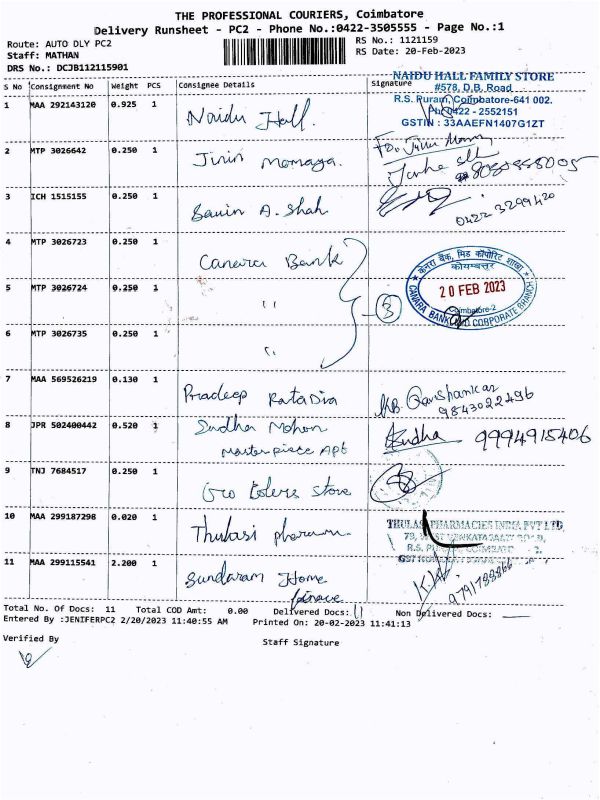 THE PROFESSIONAL COURIERS, Coimbatore
Delivery Runsheet - PC2 - Phone No.:0422-3505555 - Page No.:1
Route: AUTO DLY PC2
RS No.: 1121159
Staff: MATHAN
RS Date: 20-Feb-2023
DRS No.: DCJB112115901
S No Consignment No Weight PCS Consignee Details Signature
NAIDU HALL FAMILY STORE
#578, D.B. Road
R.S. Puram, Coimbatore-641 002.
Ph: 0422 - 2552151
GSTIN : 33AAEFN1407G1ZT
1 MAA 292143120 0.925 1 Naidu Hall.
2 MTP 3026642 0.250 1 Jinin
3 ICH 1515155 0.250 1 A. Shah
0422 3299420
4 MTP 3026723 0.250 1 Canara Bank
केनरा बैंक, मिड कॉर्पोरेट शाखा
कोयम्बत्तूर
20 FEB 2023
Coimbatore-2
CANARA BANK MID CORPORATE BRANCH
5 MTP 3026724 0.250 1 "
3
6 MTP 3026735 0.250 1 "
7 MAA 569526219 0.130 1 Pradeep Ratadia
Ravishankar
9843022496
8 JPR 502400442 0.520 1 Sudha Mohan
Masterpiece Apt
Sudha 9994915406
9 TNJ 7684517 0.250 1 Store
10 MAA 299187298 0.020 1 Thulasi pharm
THULASI PHARMACIES INDIA PVT LTD
11 MAA 299115541 2.200 1 Sundaram Home
finance
9791788866
Total No. Of Docs: 11 Total COD Amt: 0.00 Delivered Docs: 11 Non Delivered Docs:
Entered By :JENIFERPC2 2/20/2023 11:40:55 AM Printed On: 20-02-2023 11:41:13
Verified By
Staff Signature